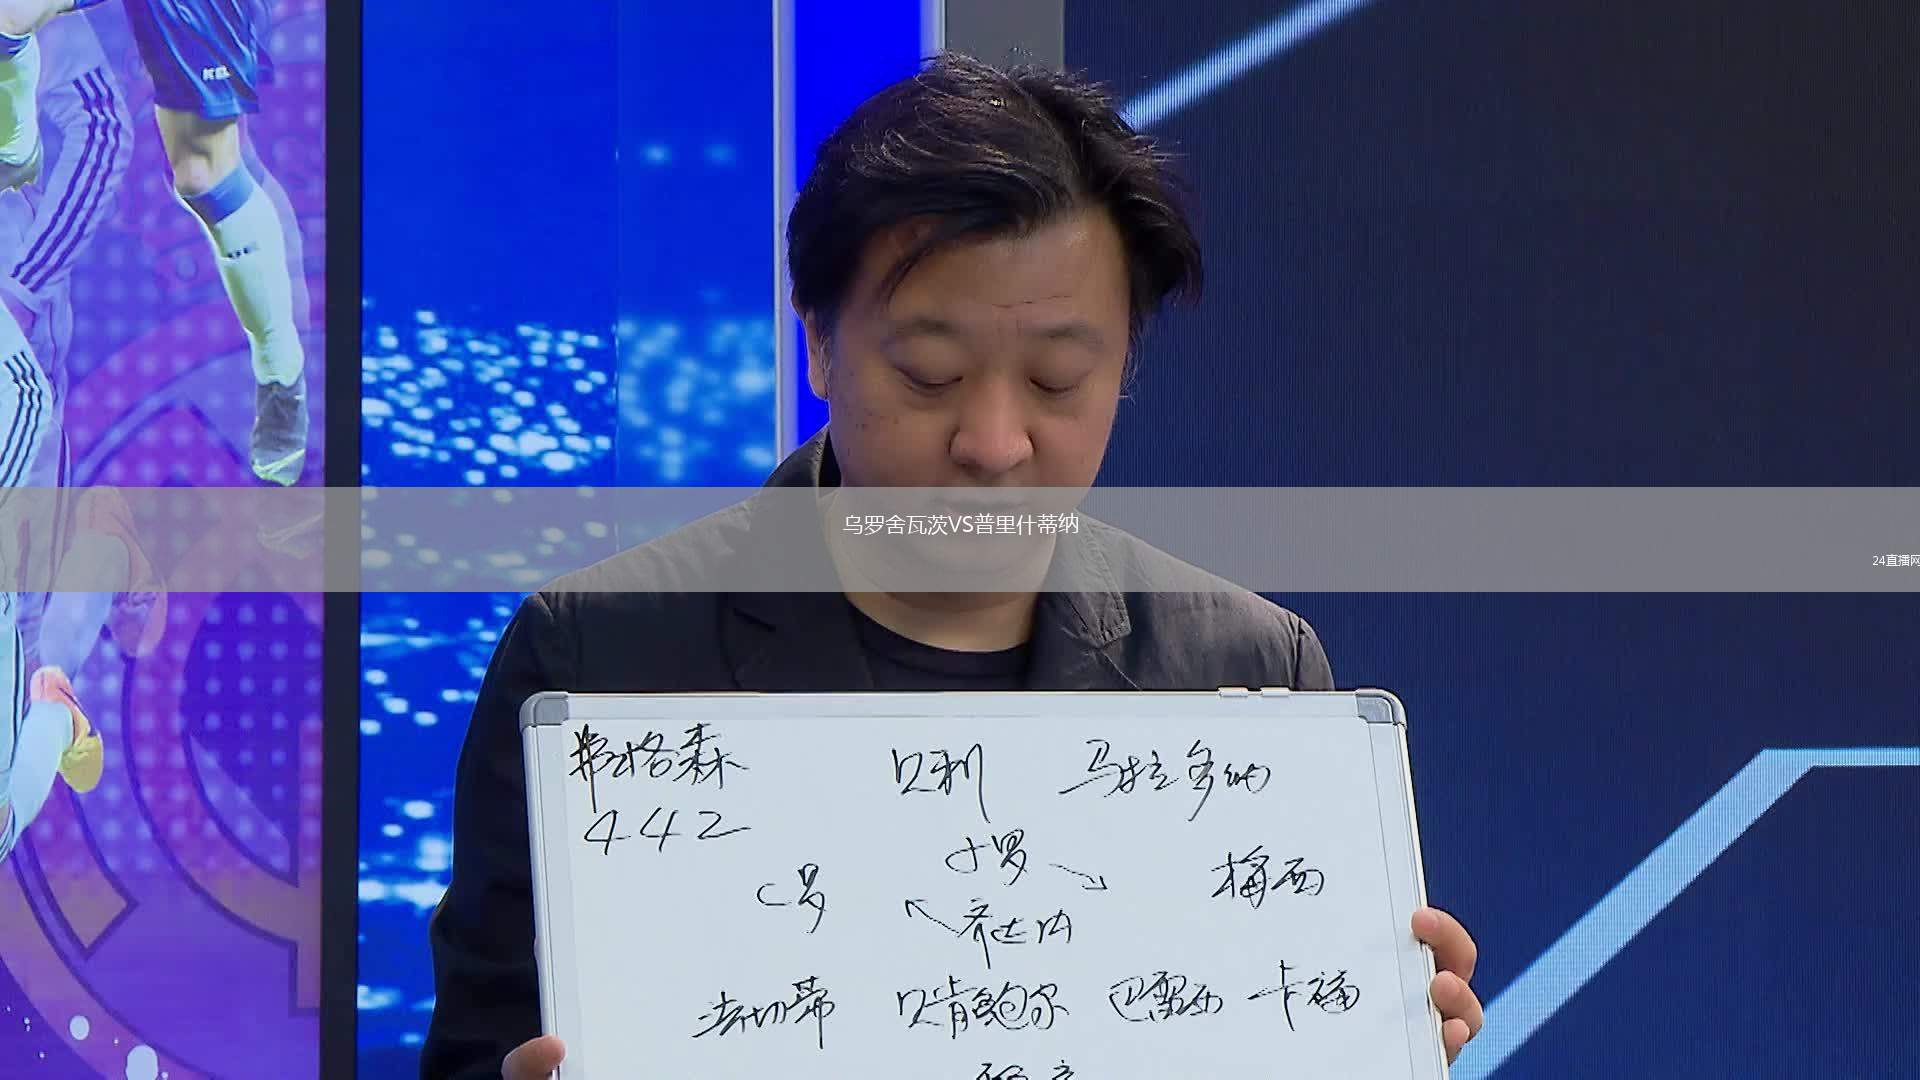 乌罗舍瓦茨VS普里什蒂纳
24直播网
弗格森 贝利 马拉多纳
442
小罗
C罗 梅西
齐达内
法切蒂 贝肯鲍尔 巴雷西 卡福